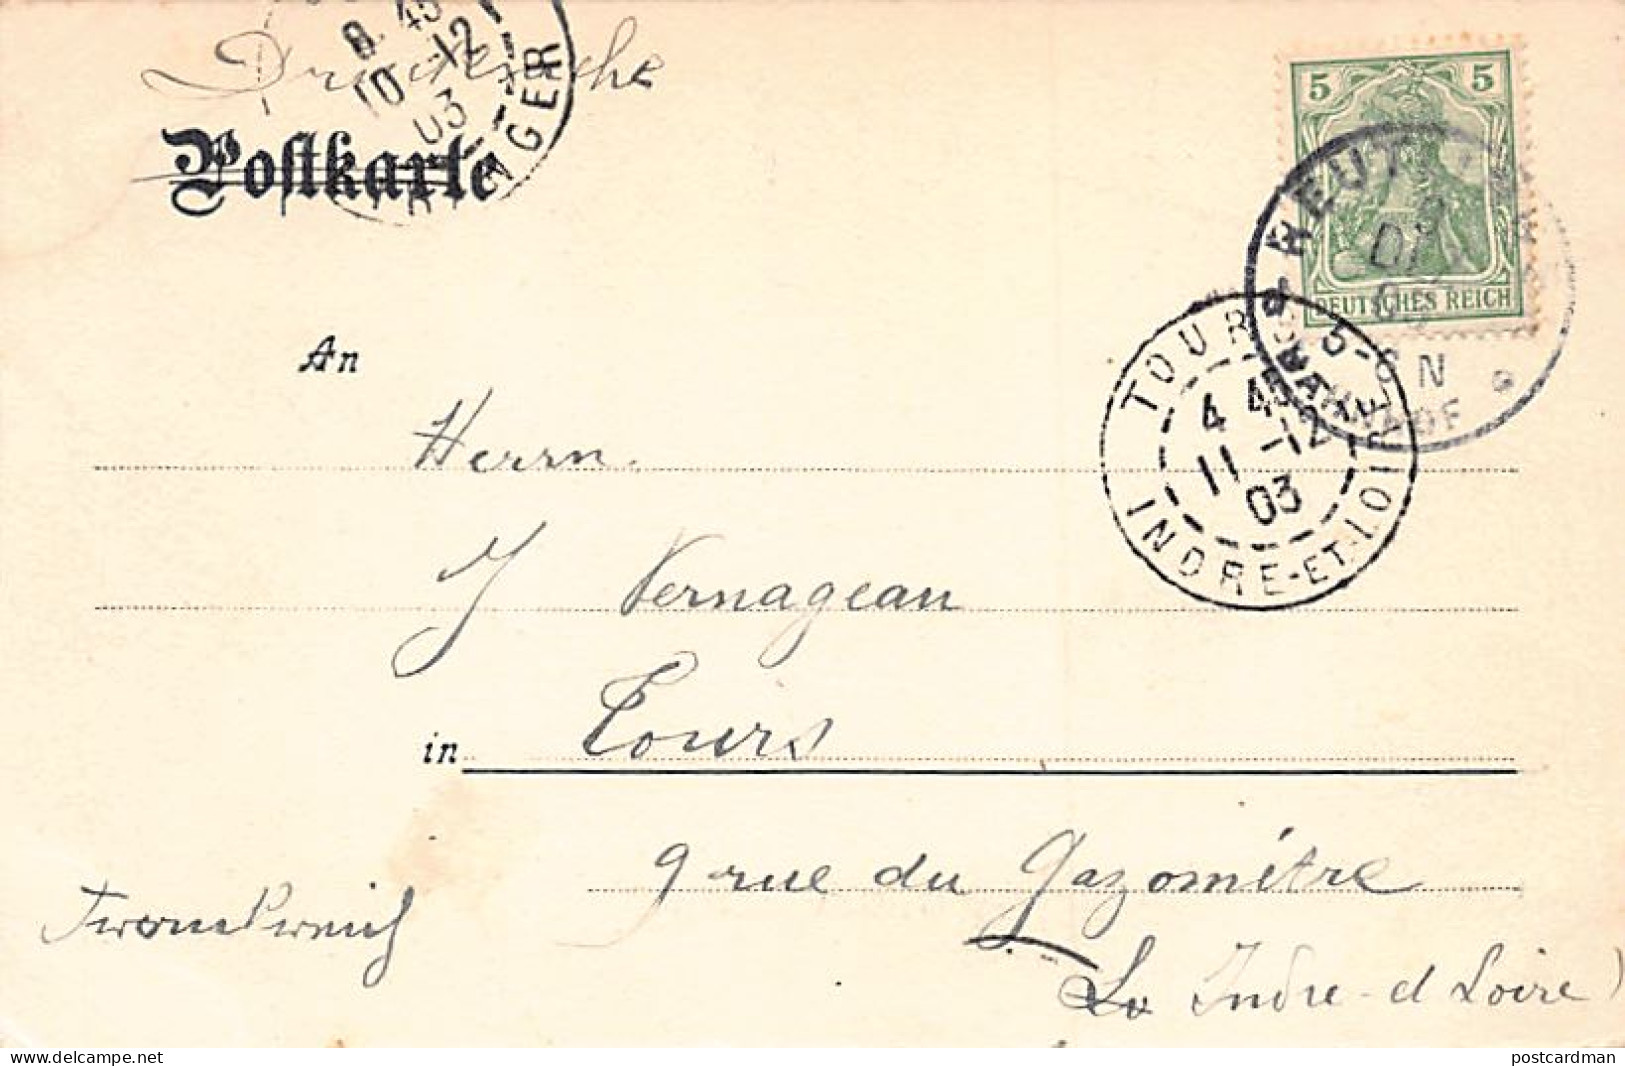 Drucksache
8. 45
10 -12
03
NGER
Postkarte
5 5
DEUTSCHES REICH
REUT
5-6 N
TOURS
4 45
11 -12
03
INDRE-ET-LOIRE
An
Herrn.
J Vernagean
in Tours
9 rue du Gazomètre
Frankreich
Indre-et Loire)
postcardman
www.delcampe.net